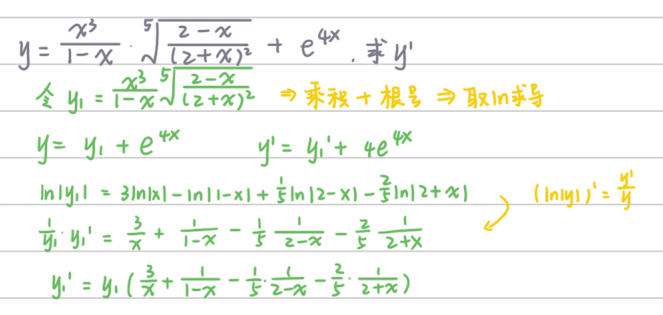 y = \frac{x^3}{1-x} · \sqrt[5]{\frac{2-x}{(2+x)^2}} + e^{4x}. 求 y'
令 y_1 = \frac{x^3}{1-x} \sqrt[5]{\frac{2-x}{(2+x)^2}} ⇒ 乘积 + 根号 ⇒ 取ln求导
y = y_1 + e^{4x} y' = y_1' + 4e^{4x}
ln|y_1| = 3ln|x| - ln|1-x| + \frac{1}{5}ln|2-x| - \frac{2}{5}ln|2+x| (ln|y|)' = \frac{y'}{y}
\frac{1}{y_1} · y_1' = \frac{3}{x} + \frac{1}{1-x} - \frac{1}{5} \frac{1}{2-x} - \frac{2}{5} \frac{1}{2+x}
y_1' = y_1 (\frac{3}{x} + \frac{1}{1-x} - \frac{1}{5} · \frac{1}{2-x} - \frac{2}{5} · \frac{1}{2+x})